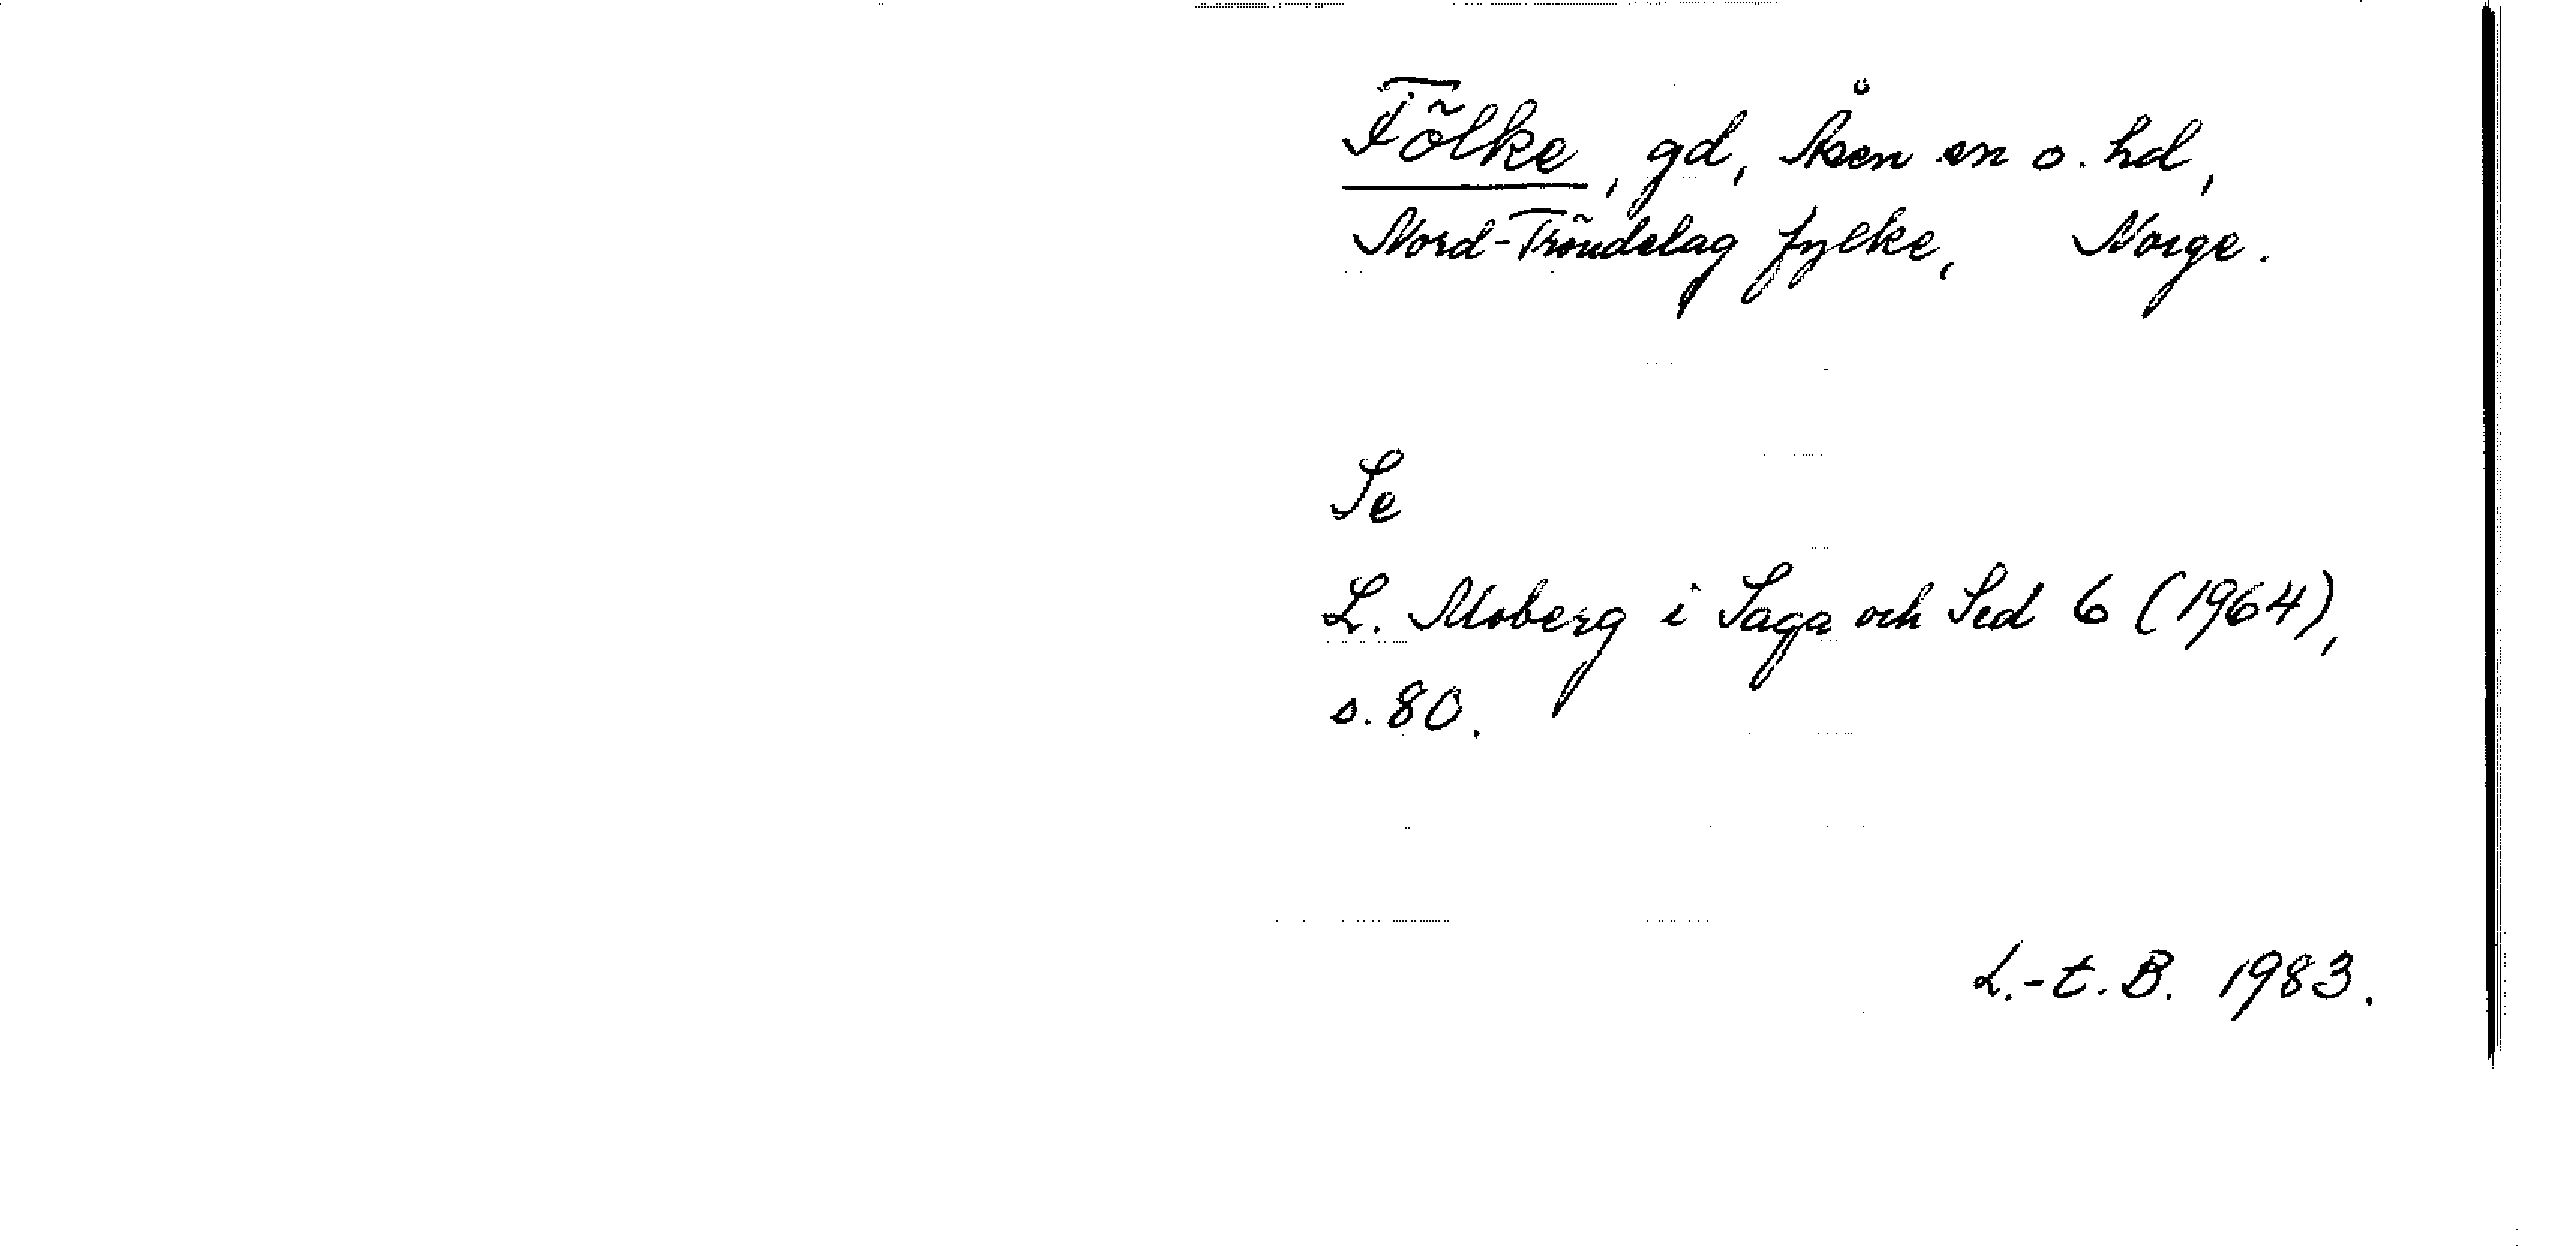 Fõlke, gd, Åsen sn o. hd,
Nord-Trõndelag fylke, Norge.
Se
L. Moberg i Saga och Sed 6 (1964),
s. 80.
L.-E. B. 1983.